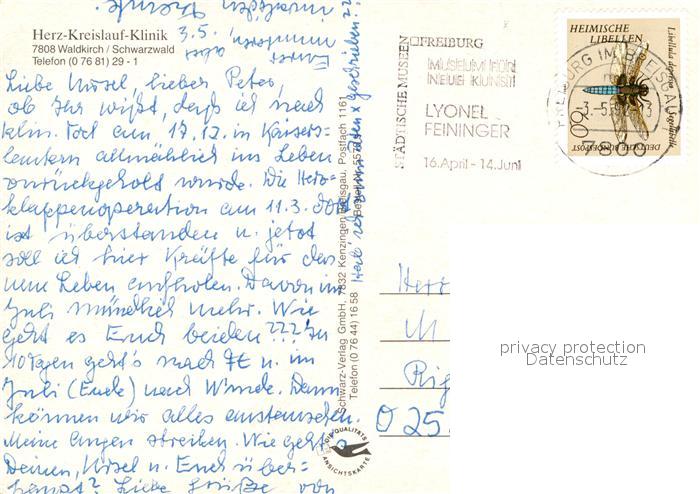 Herz-Kreislauf-Klinik
7808 Waldkirch / Schwarzwald
Telefon (0 76 81) 29 - 1
3.5.
Liebe Ursel, lieber Peter,
ob Ihr wißt, daß ich nach
klin. Tod am 17.12. in Kaisers-
lautern allmählich ins Leben
zurückgeholt wurde. Die Herz-
klappenoperation am 11.3. dort
ist überstanden u. jetzt
soll ich hier Kräfte für das
neue Leben aufholen. Davon im
Juli mündlich mehr. Wie
geht es Euch beiden??? In
10 Tagen geht's nach u. im
Juli (Ende) nach Dann
können wir alles austauschen.
Meine Augen streiken. Wie geht's
Deinen, Ursel u. Euch über-
haupt? Liebe Grüße von
Eurer
Schwarz-Verlag GmbH, 7832 Kenzingen/Breisgau, Postfach 1161
Telefon (0 76 44) 16 58
QUALITÄTS
ANSICHTSKARTE
STÄDTISCHE MUSEEN
FREIBURG
MUSEUM FÜR
NEUE KUNST
LYONEL
FEININGER
16. April - 14. Juni
FREIBURG IM BREISGAU
7800
HEIMISCHE
LIBELLEN
Libellula depressa
60
DEUTSCHE BUNDESPOST
O 25
privacy protection
Datenschutz